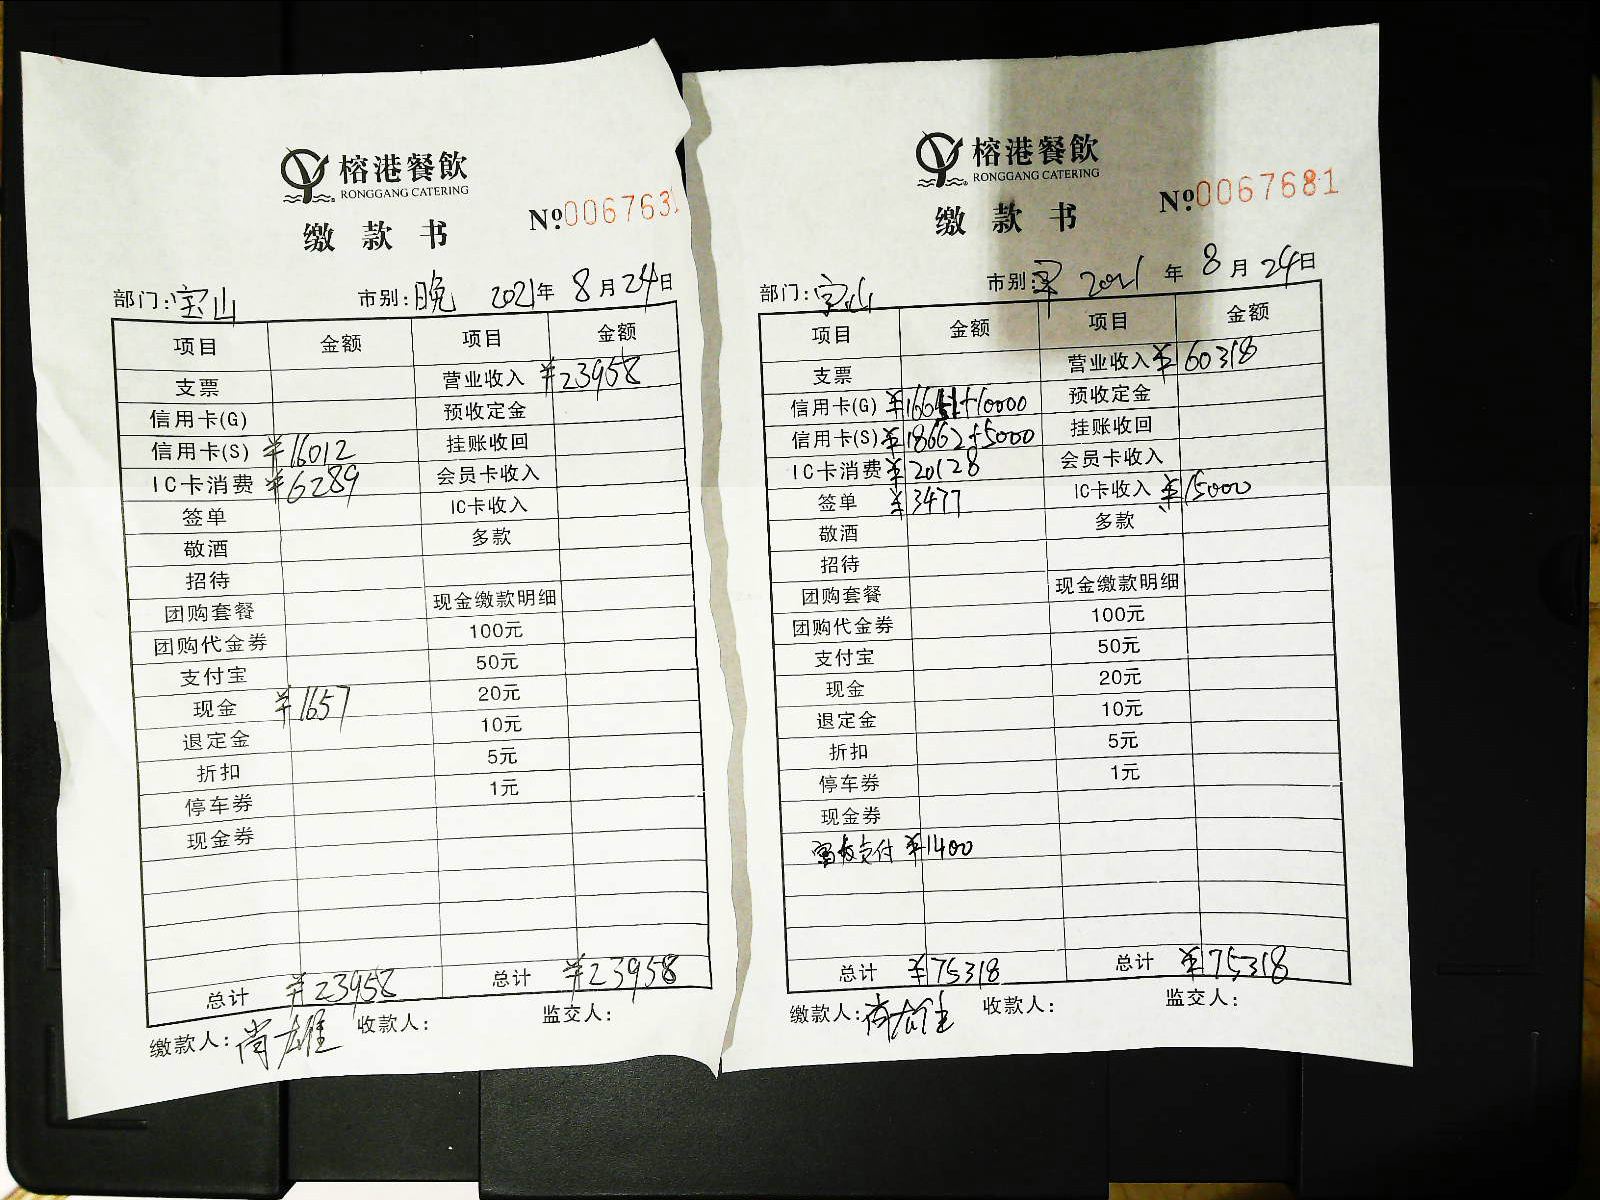 榕港餐飲
RONGGANG CATERING
缴款书
№0067631
部门:宝山 市别:晚 2021年 8月24日
项目 金额 项目 金额
支票 营业收入 ¥23958
信用卡(G) 预收定金
信用卡(S) ¥16012 挂账收回
IC卡消费 ¥6289 会员卡收入
签单 IC卡收入
敬酒 多款
招待
团购套餐 现金缴款明细
团购代金券 100元
支付宝 50元
现金 ¥1657 20元
退定金 10元
折扣 5元
停车券 1元
现金券
总计 ¥23958 总计 ¥23958
缴款人:尚雄 收款人: 监交人:
榕港餐飲
RONGGANG CATERING
缴款书
№0067681
部门:宝山 市别:早 2021年 8月24日
项目 金额 项目 金额
支票 营业收入 ¥60318
信用卡(G) ¥16651+10000 预收定金
信用卡(S) ¥18662+5000 挂账收回
IC卡消费 ¥20128 会员卡收入
签单 ¥3477 IC卡收入 ¥15000
敬酒 多款
招待
团购套餐 现金缴款明细
团购代金券 100元
支付宝 50元
现金 20元
退定金 10元
折扣 5元
停车券 1元
现金券
富友支付 ¥1400
总计 ¥75318 总计 ¥75318
缴款人:尚雄 收款人: 监交人: